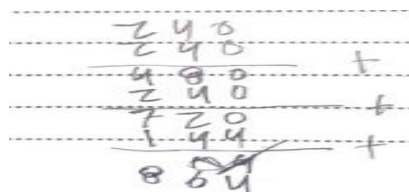 240
240 +
480
240 +
720
144 +
864